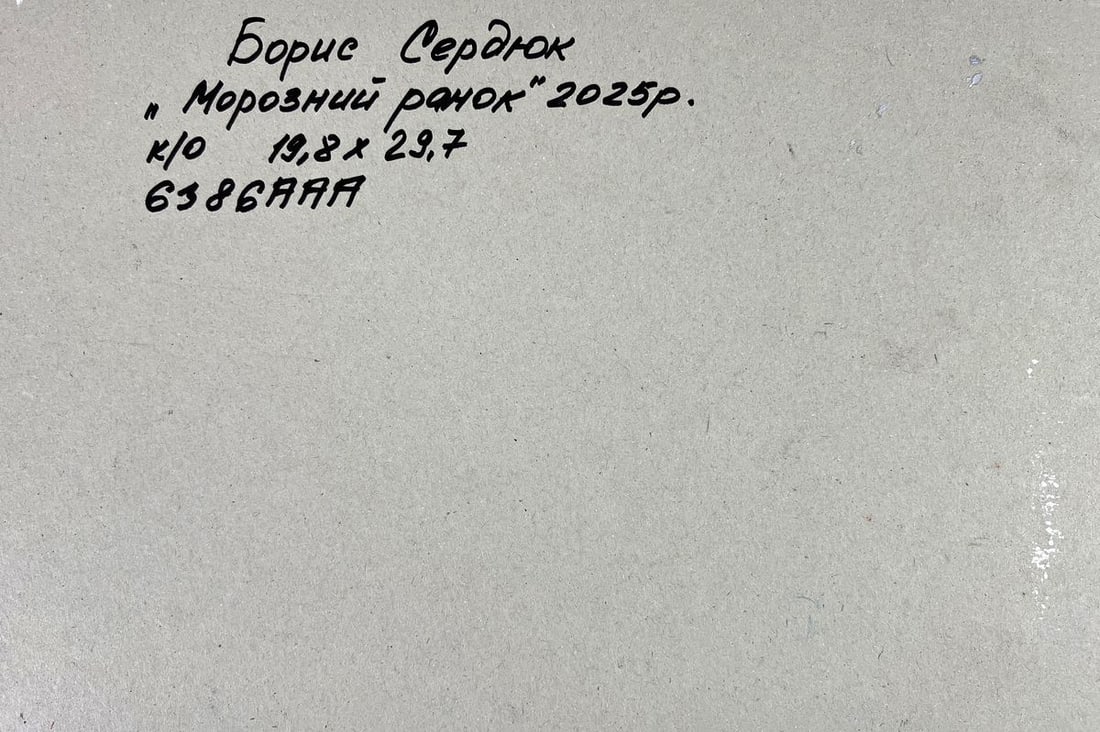 Борис Сердюк
„Морозний ранок" 2025р.
к/о 19,8 х 29,7
6386ААА